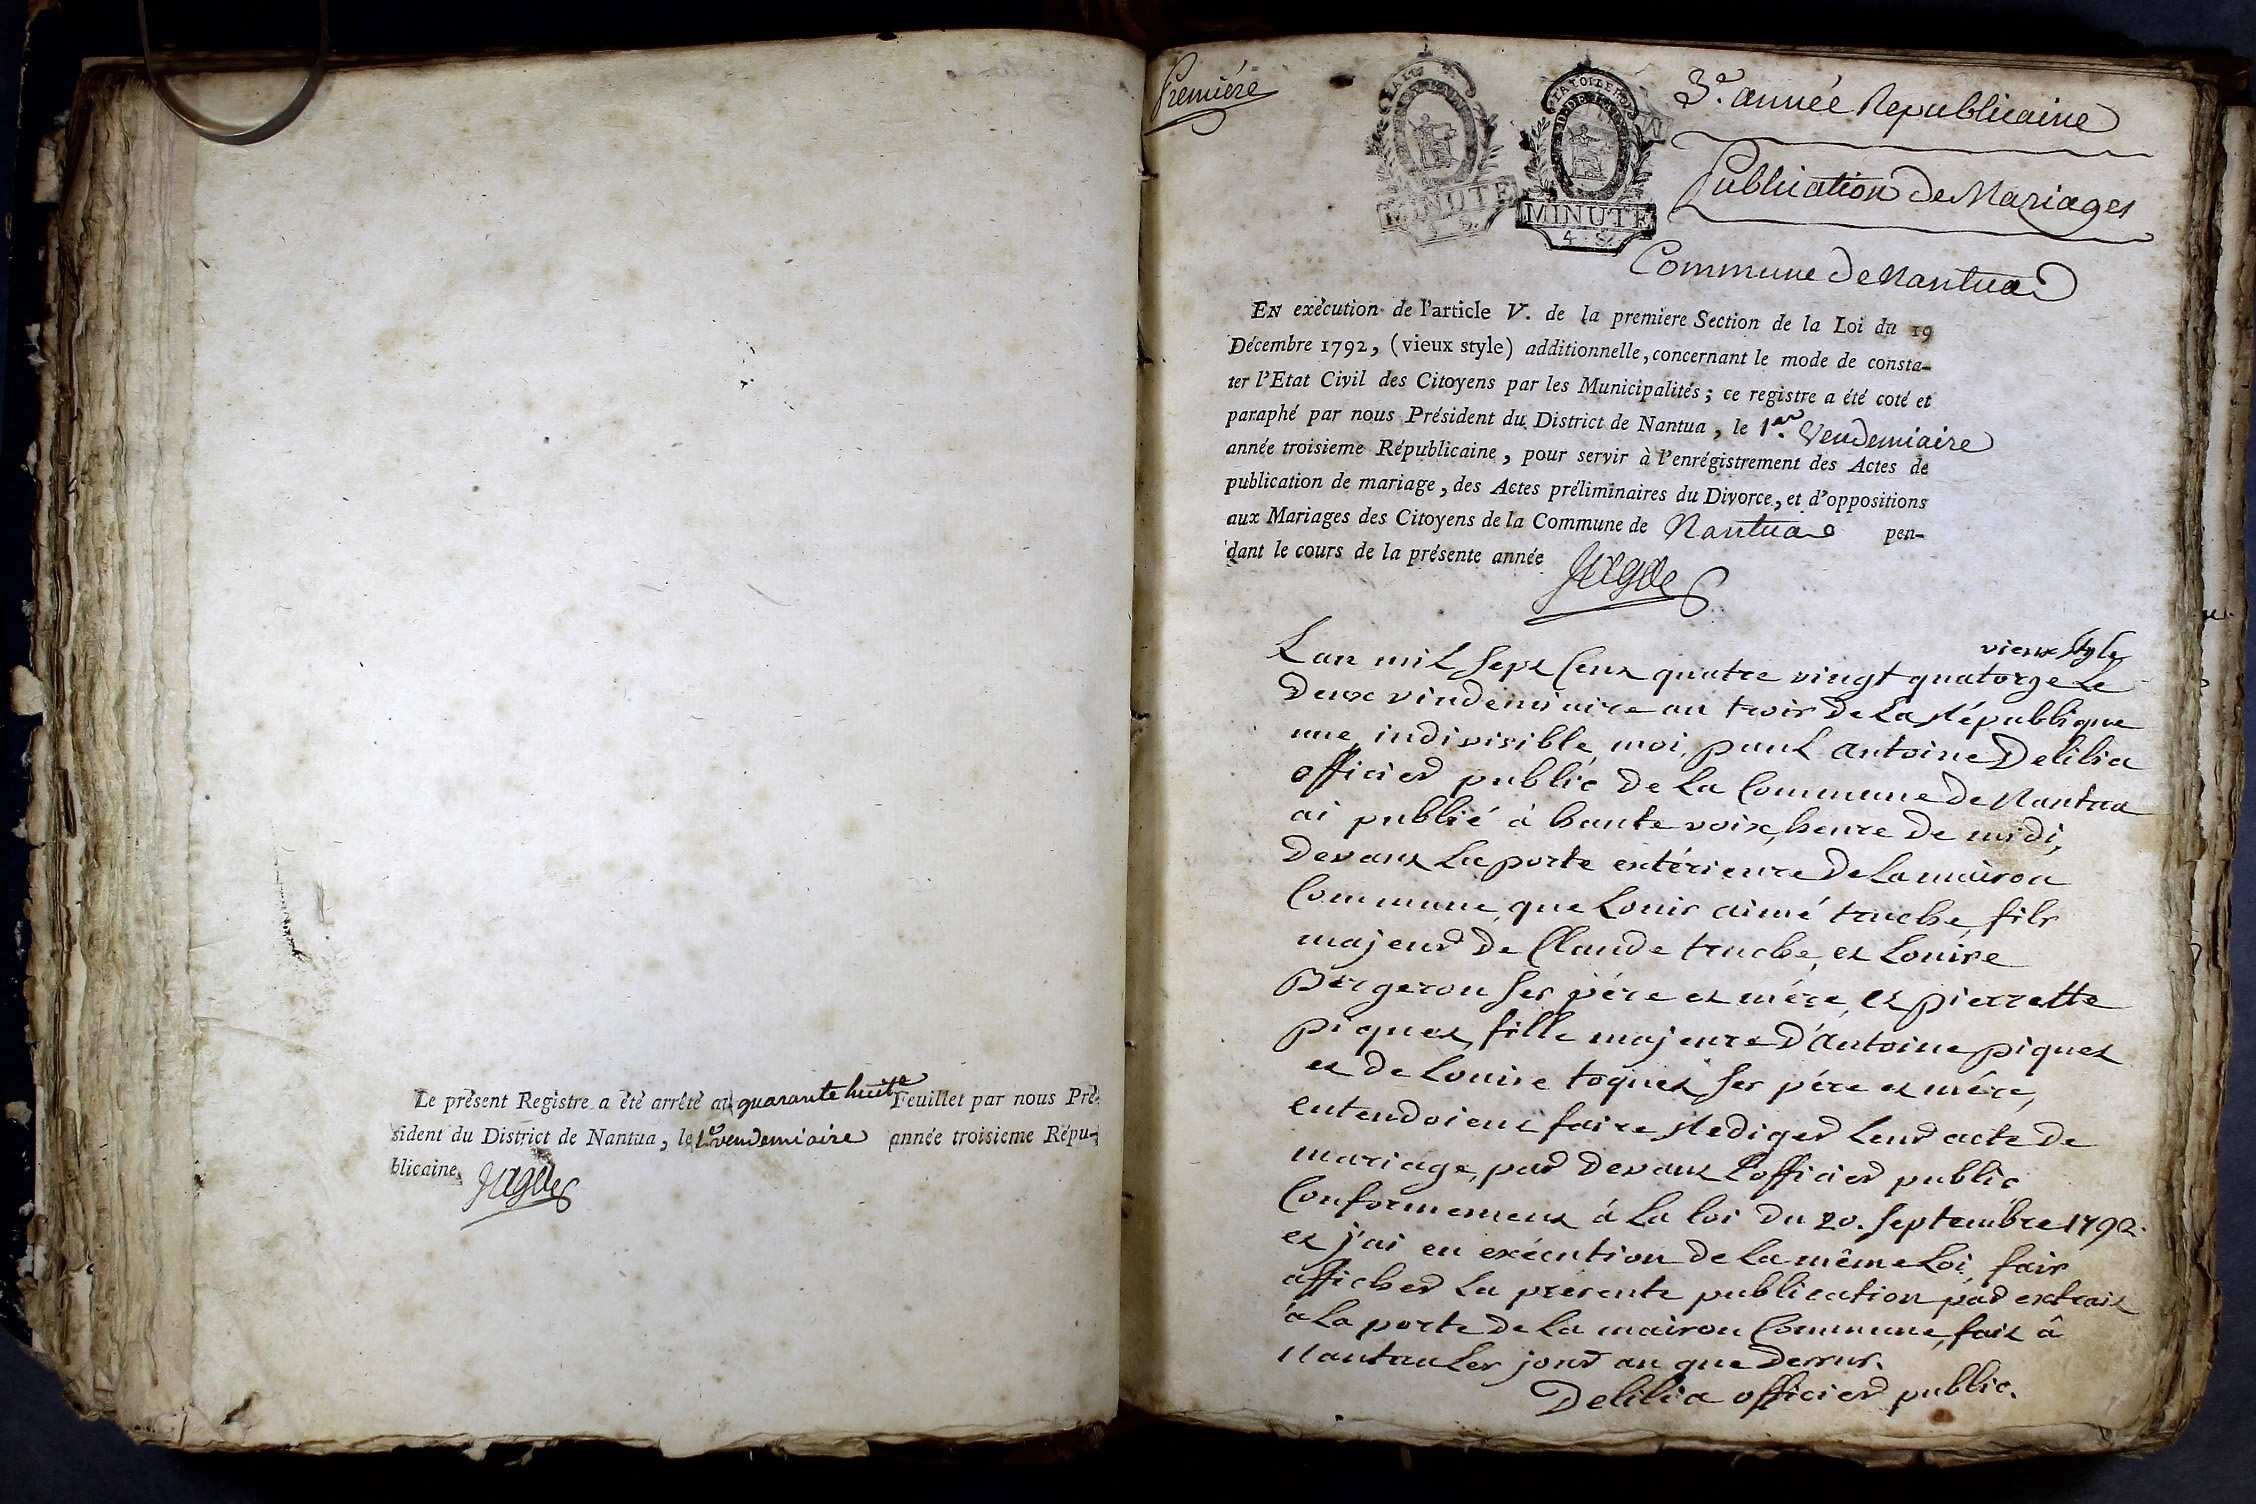 Le présent Registre a été arrêté au quarante huite Feuillet par nous Pré-
sident du District de Nantua, le 1er vendemiaire année troisieme Répu-
blicaine.
Premiére
MINUTE
MINUTE
4. S.
3e. année Republicaine
Publication de Mariages
Commune de Nantua
EN exècution de l'article V. de la premiere Section de la Loi du 19
Décembre 1792, (vieux style) additionnelle, concernant le mode de consta-
ter l'Etat Civil des Citoyens par les Municipalités; ce registre a été coté et
paraphé par nous Président du District de Nantua, le 1er. Vendemiaire
année troisieme Républicaine, pour servir à l'enrégistrement des Actes de
publication de mariage, des Actes préliminaires du Divorce, et d'oppositions
aux Mariages des Citoyens de la Commune de Nantua pen-
dant le cours de la présente année
vieux style
Lan mil sept cent quatre vingt quatorze le
deux vindemiaire an trois de la République
une indivisible, moi, paul antoine Delilia
officier public de la Commune de Nantua
ai publié à haute voix, heure de midi,
devant la porte extérieure de la maison
Commune, que Louis aimé truche, fils
majeur de Claude truche, et Louise
Bergeron ses pére et mére, et pierrette
piquet, fille majeure d'antoine piquet
et de Louise toquet ses pére et mére,
entendoient faire rediger leur acte de
mariage, par devant l'officier public
Conformement à la loi du 20. septembre 1792.
et j'ai en exécution de la même Loi, fait
afficher la présente publication par extrait
à la porte de la maison Commune, fait à
Nantua les jour an que dessus.
Delilia officier public.